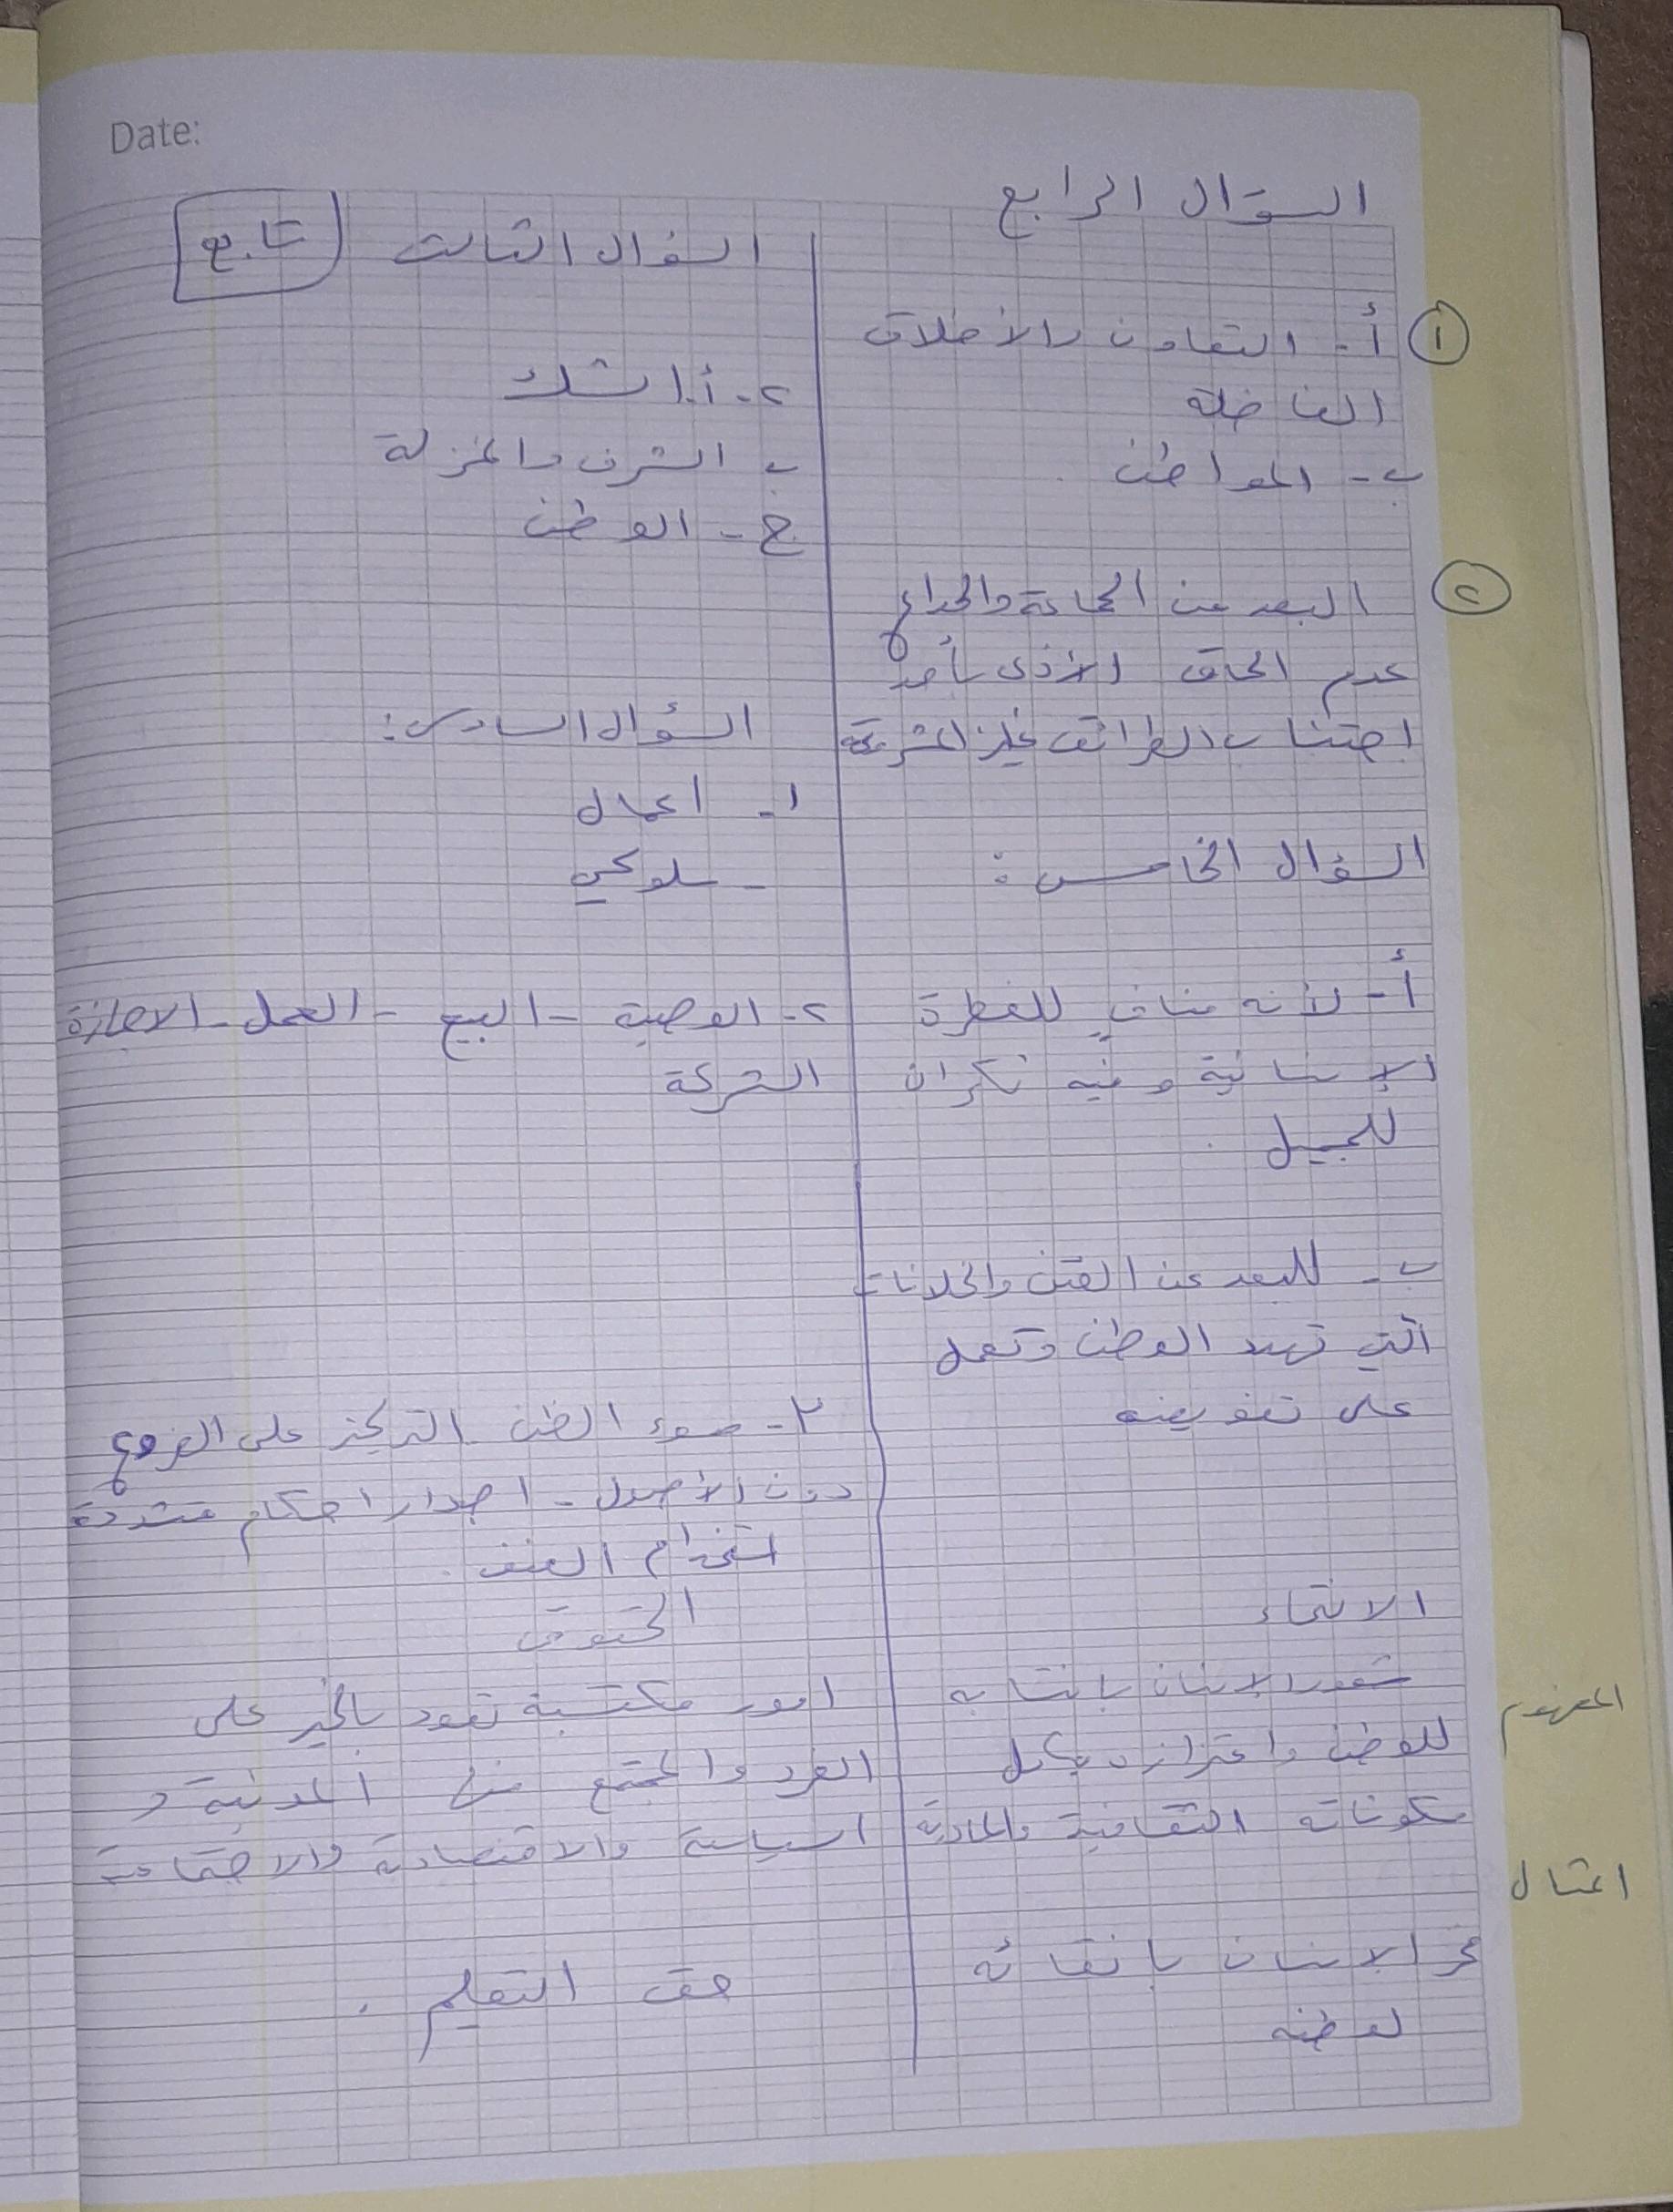 Date:
السؤال الرابع
١ أ- التعاون والأخلاق
الفاضلة
ب- المواطن
٢ البعد عن المجاعة والخداع
عدم الحاق الأذى بأحد
اجتناب الطرائق غير المشروعة
السؤال الخامس:
أ- لأنه منافٍ للفطرة
الإنسانية وفيه نكران
للجميل.
ب- للبعد عن الفتن والخلافات
التي تهدد الوطن وتعمل
على تفويضه
الانتماء
المفهوم شعور الإنسان بانتسابه
للوطن واعتزازه بكل
مكوناته الثقافية والمادية
امثال
فخر الإنسان بانتمائه
لوطنه
السؤال الثالث تابع
٢- أ. الشك
ب الشرف والمنزلة
ج- الوطن
السؤال السادس:
١- اعمال
- سلوكي
٢- الوصية - البيع - العمل - الاجازة
الشركة
٣- سوء الظن التركيز على الفروع
دون الأصول - اصدار احكام متشددة
استخدام العنف.
الحقوق
امور مكتسبة تعود بالخير على
الفرد والمجتمع المدنية و
السياسية والاقتصادية والاجتماعية
حق التعليم.